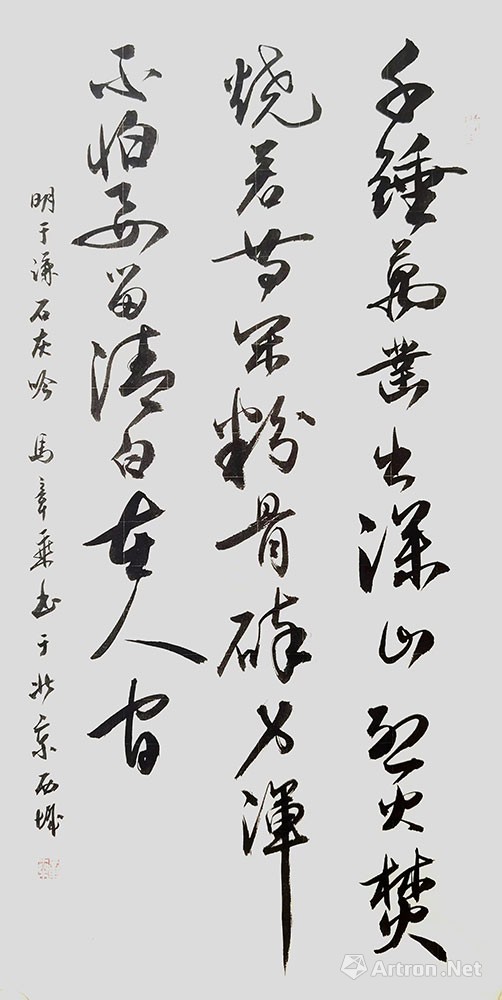 千錘萬凿出深山烈火焚
燒若等闲粉骨碎身渾
不怕要留清白在人间
明于谦石灰吟 馬章乘书于北京西城
Artron.Net